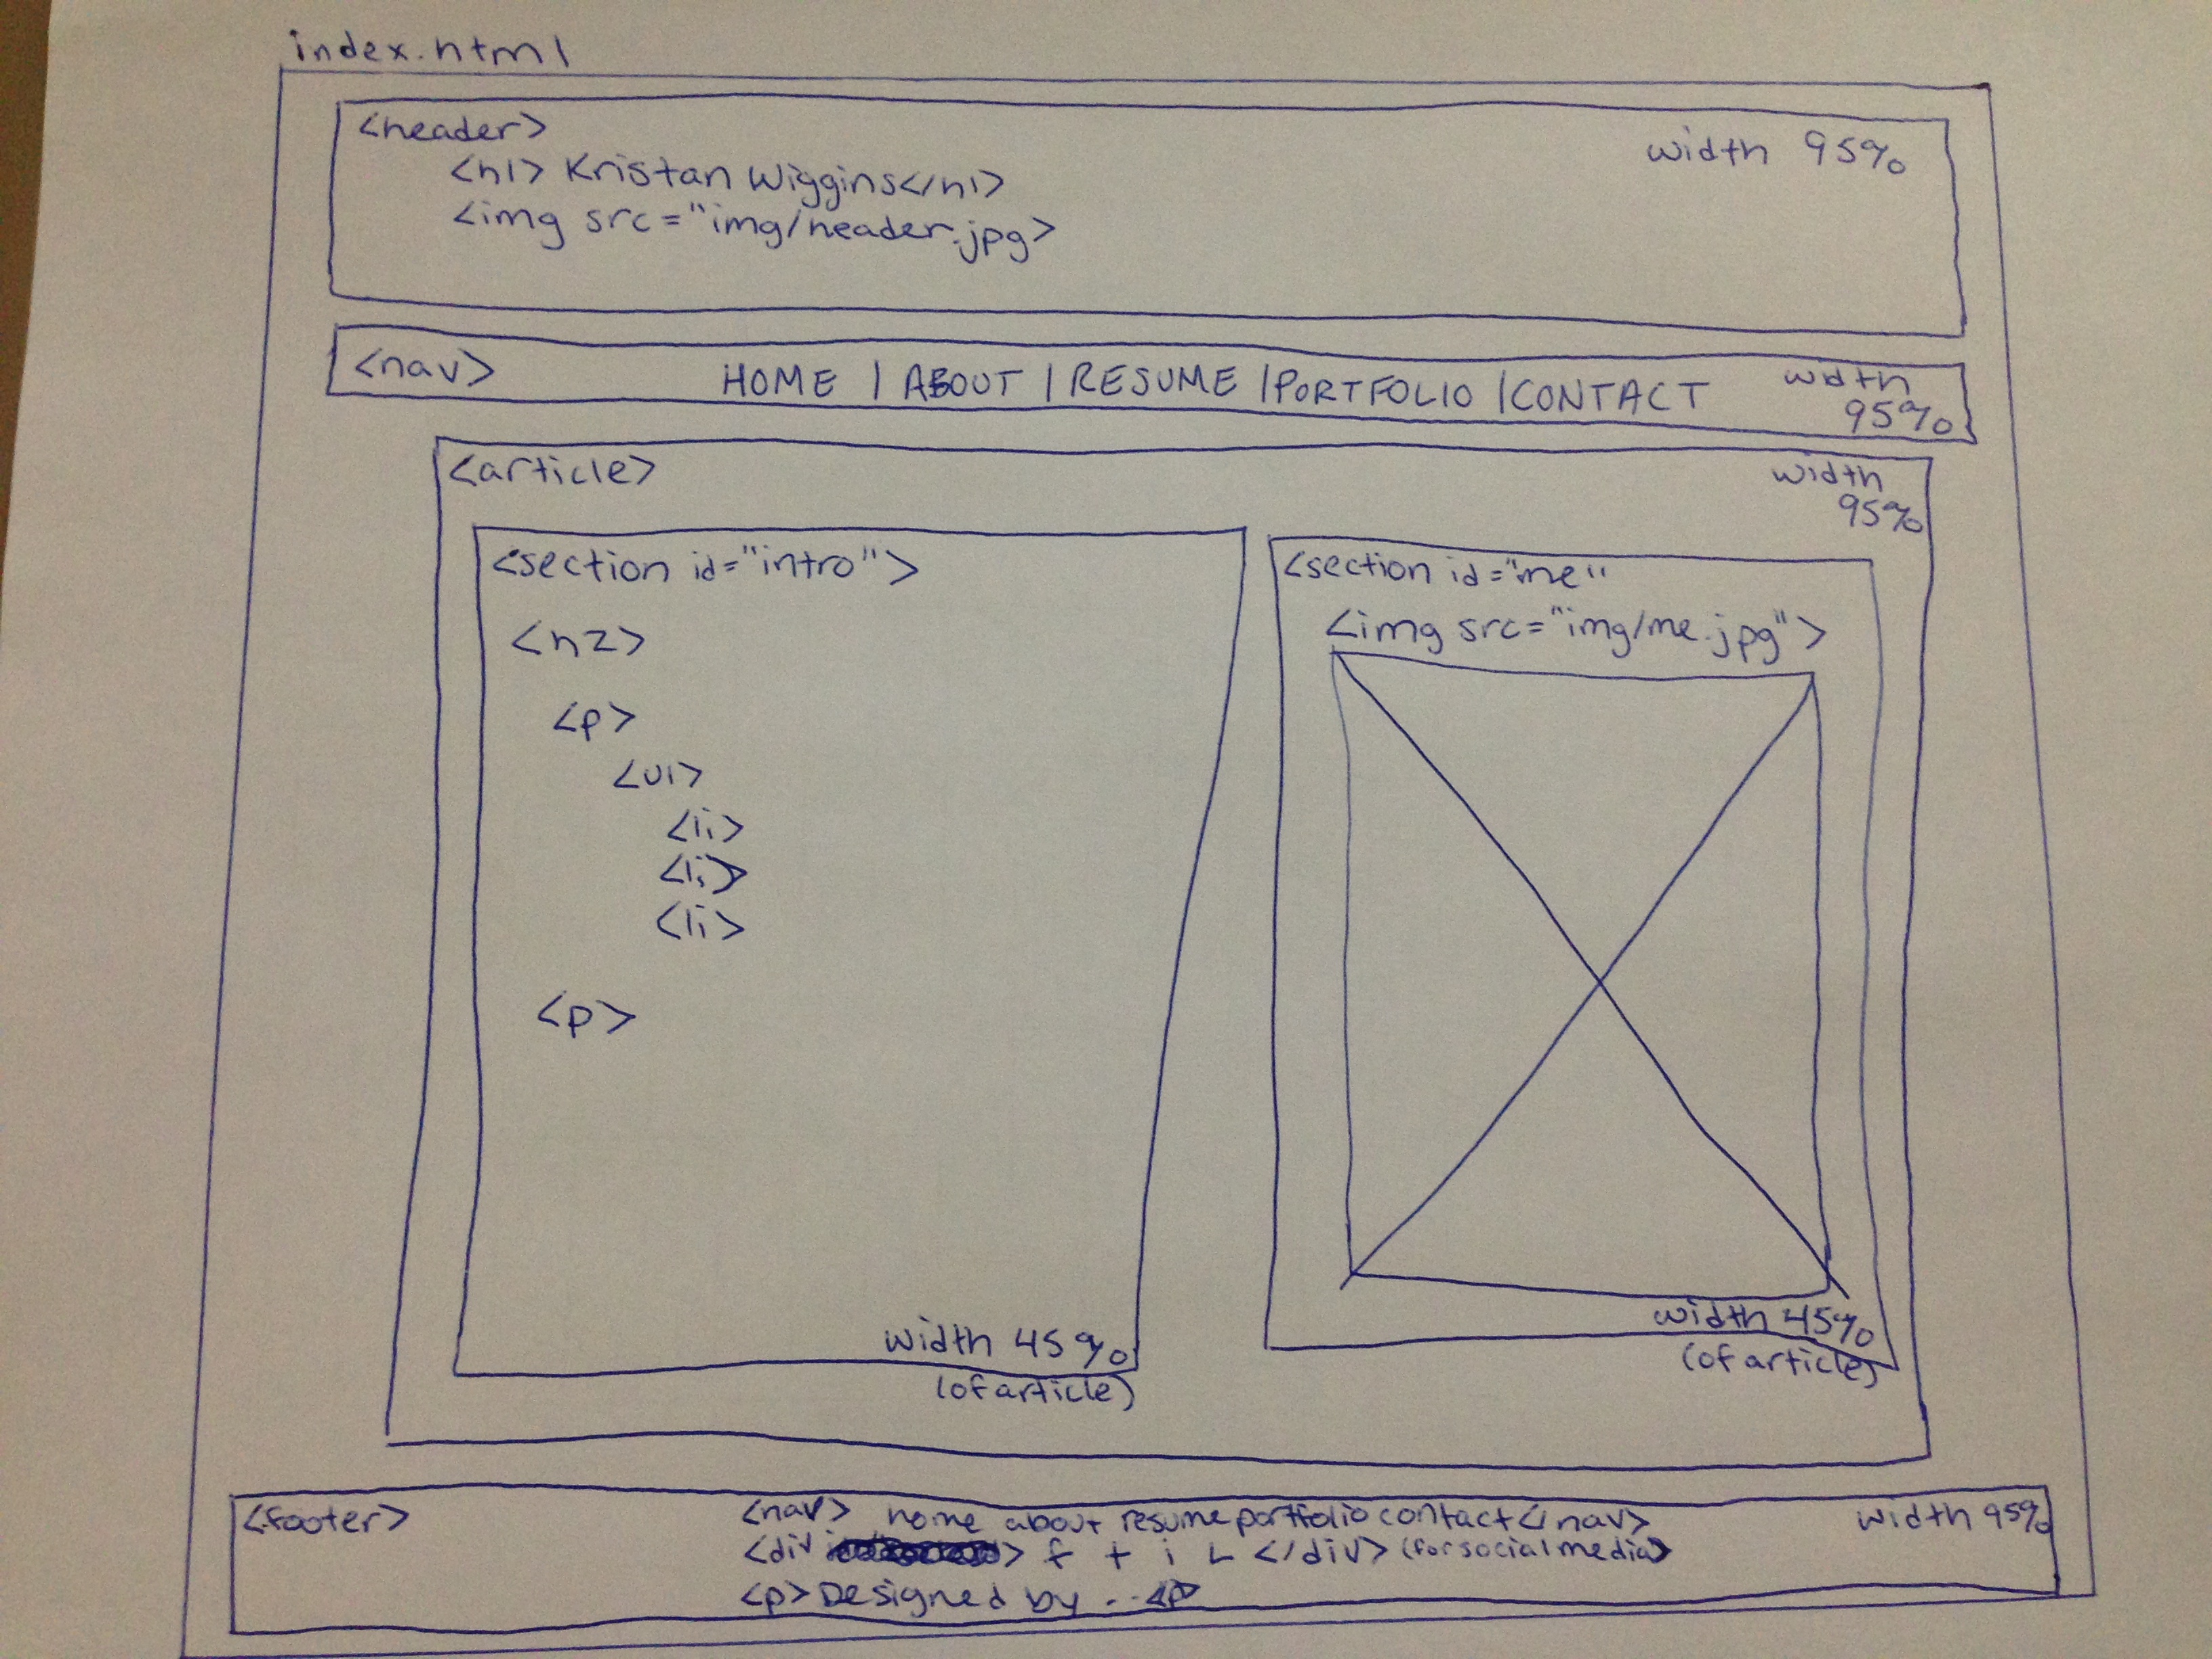 index.html
<header>
width 95%
<h1> Kristan Wiggins</h1>
<img src="img/header.jpg>
<nav>
HOME | ABOUT | RESUME | PORTFOLIO | CONTACT
width
95%
<article>
width
95%
<section id="intro">
<h2>
<p>
<ul>
<li>
<li>
<li>
<p>
width 45%
(of article)
<section id="me"
<img src="img/me.jpg">
width 45%
(of article)
<footer>
<nav> home about resume portfolio contact</nav>
width 95%
<div > f t i L </div> (for social media)
<p>Designed by ...<p>